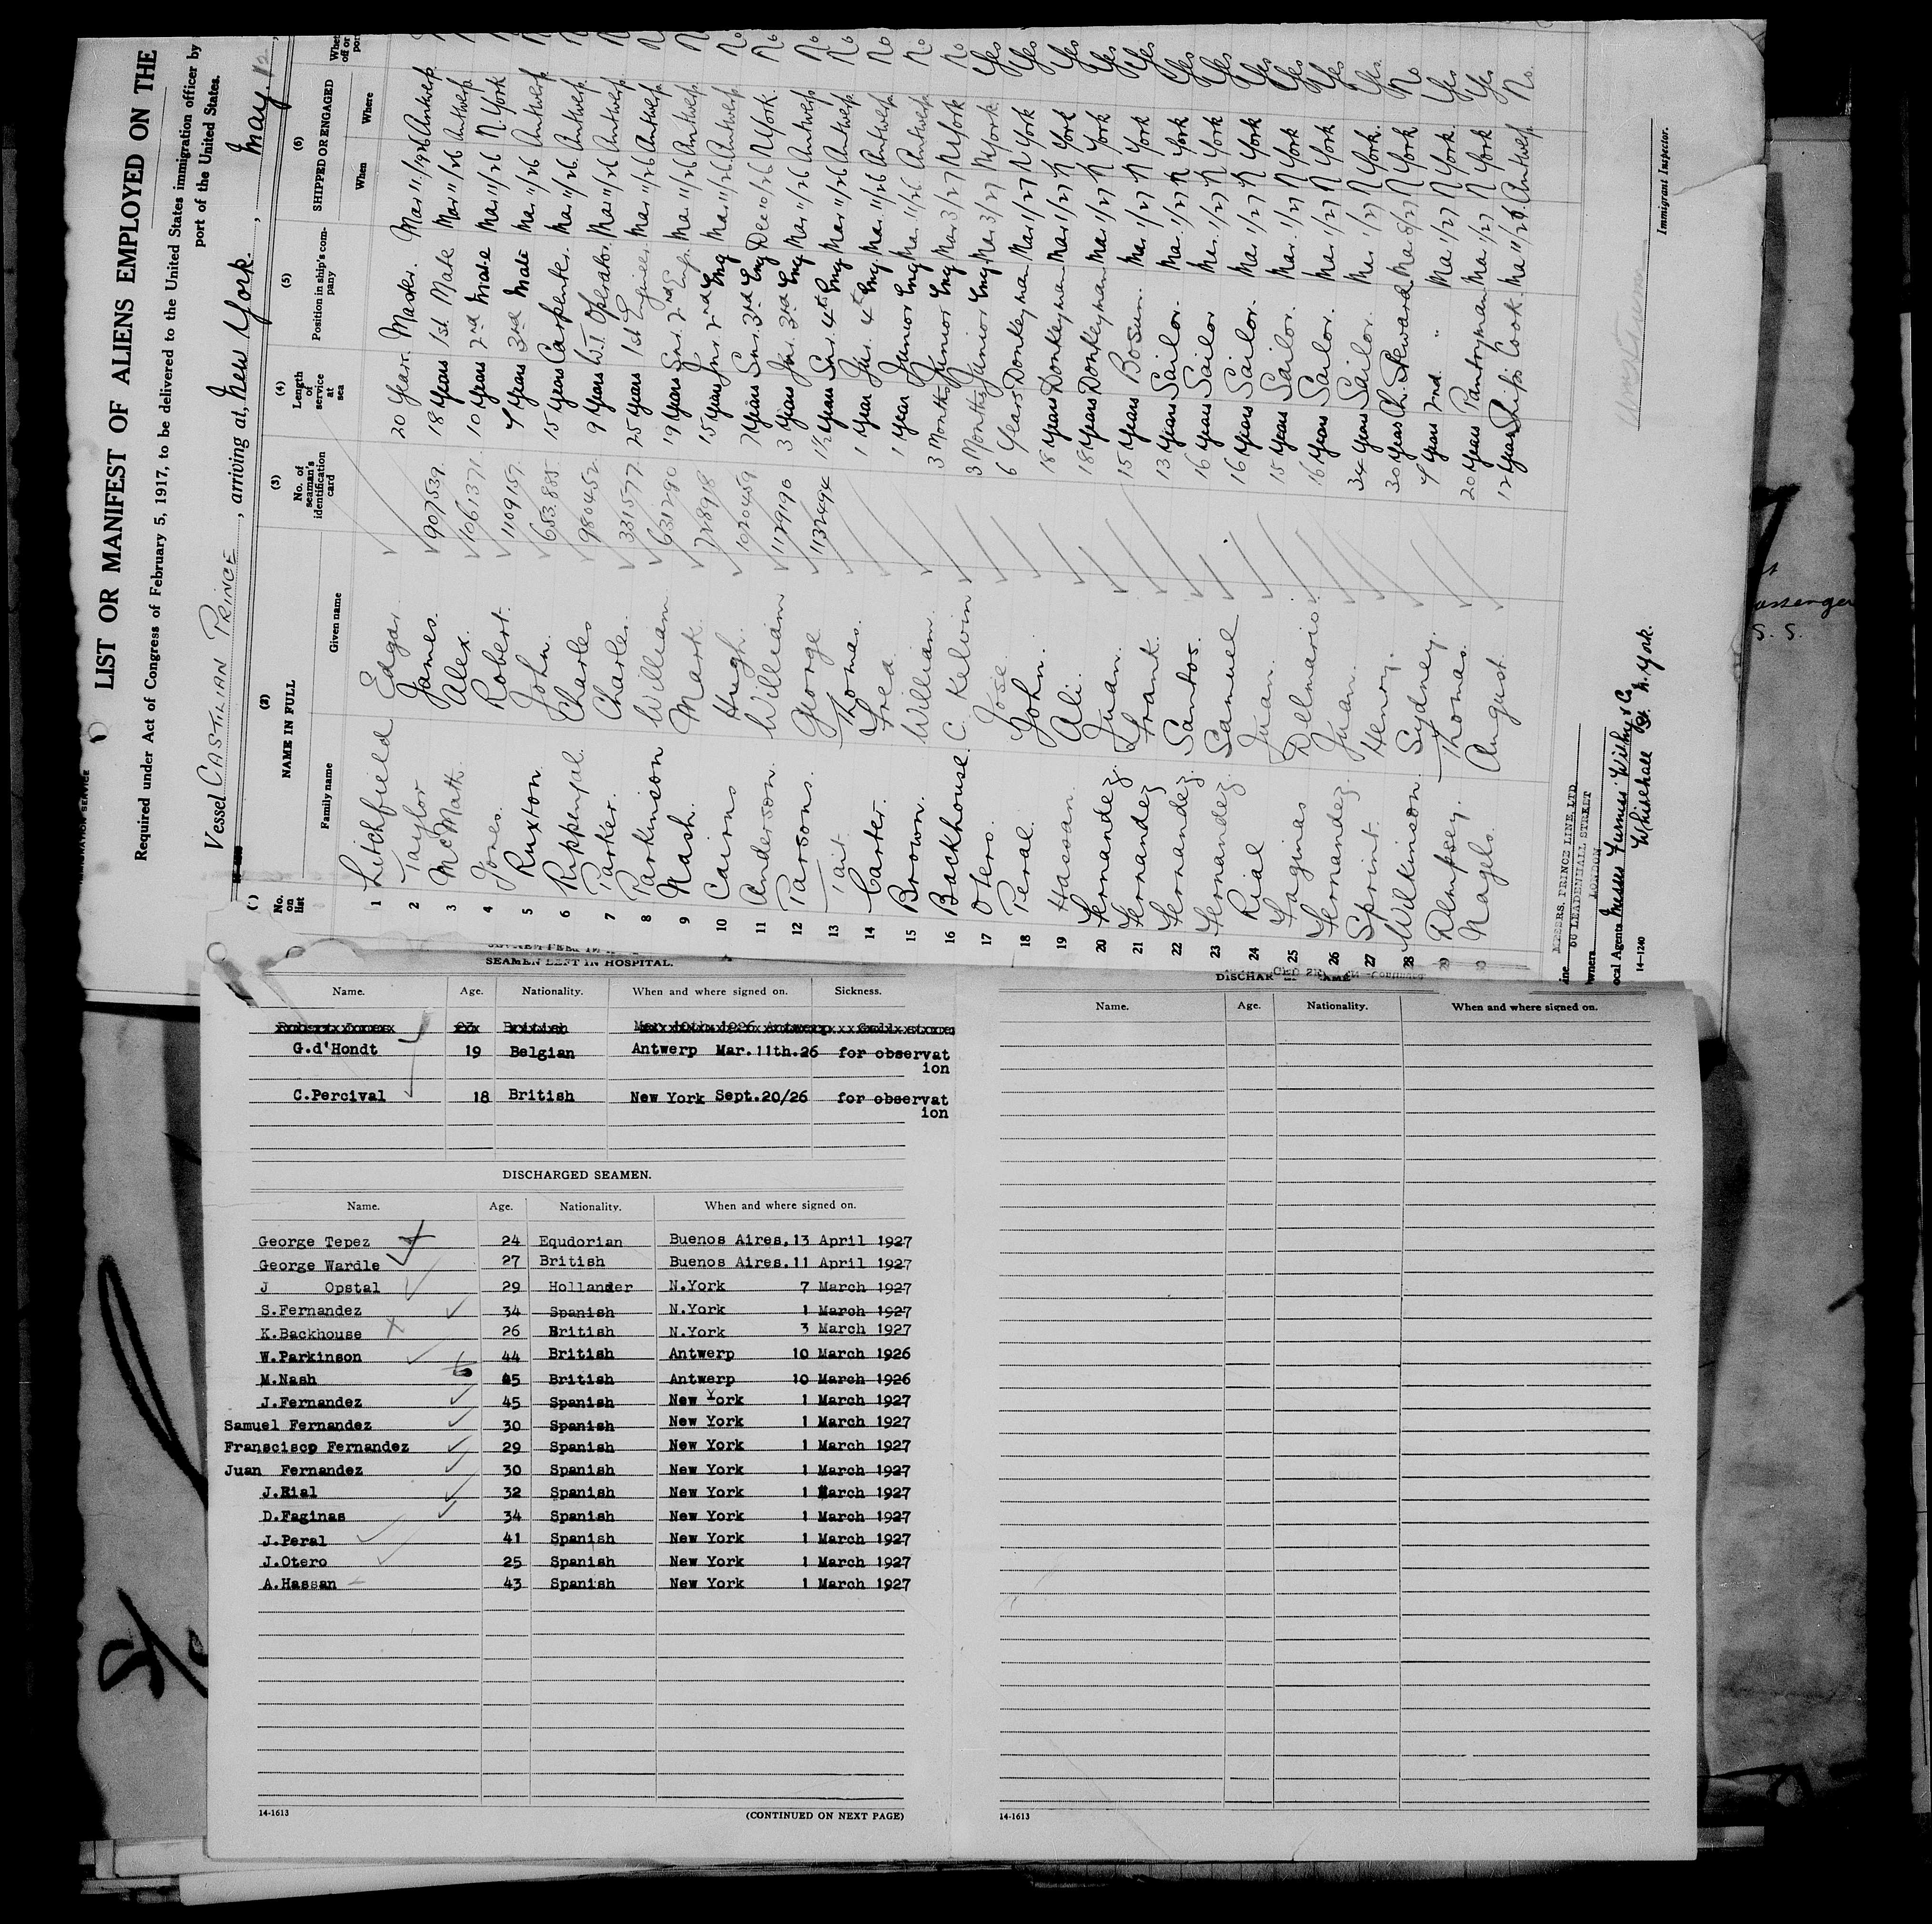 LIST OR MANIFEST OF ALIENS EMPLOYED ON THE
Required under Act of Congress of February 5, 1917, to be delivered to the United States immigration officer by
port of the United States.
Vessel CASTILIAN PRINCE, arriving at New York, May 12
(1) No. on list (2) NAME IN FULL Family name Given name (3) No. of seaman's identification card (4) Length of service at sea (5) Position in ship's company (6) SHIPPED OR ENGAGED When Where
1 Litchfield Edgar. 20 Years. Master. Mar 11/1926 Antwerp.
2 Taylor James. 907539. 18 Years 1st Mate Mar 11/26 Antwerp
3 McMath. Alex. 1061371. 10 Years 2nd Mate Mar 11/26 N. York
4 Jones. Robert. 1109157. 7 Years 3rd Mate Mar 11/26 Antwerp
5 Ruxton John. 653.885 15 Years Carpenter. Mar 11/26 Antwerp.
6 Charles 980452. 9 Years W.T Operator. Mar 11/26 Antwerp
7 Parker. Charles. 331577. 25 Years 1st Engineer. Mar 11/26 Antwerp
8 Parkinson William. 631290 19 Years Snr. 2nd Eng. Mar 11/26 Antwerp
9 Nash. Mark. 728918 15 Years Jnr 2nd Eng Mar 11/26 Antwerp No
10 Cairns Hugh. 1020459 7 Years Snr. 3rd Eng Dec 10/26 N York. No
11 Anderson. William 1129190 3 Years Jnr. 3rd Eng Mar 11/26 Antwerp No
12 Parsons. George 1132494 1 1/2 Years Snr. 4th Eng Mar 11/26 Antwerp. No
13 Tait Thomas. 1 Year Jnr. 4th Eng. Mar 11/26 Antwerp No
14 Carter. Fred. 1 Year Junior Eng Mar 11/26 Antwerp No
15 Brown. William. 3 Months Junior Eng Mar 3/27 N York No
16 Backhouse. C. Kelvin 3 Months Junior Eng Mar 3/27 N York. Yes
17 Otero. Jose. 6 Years Donkeyman Mar 1/27 N York Yes
18 Peral. John. 18 Years Donkeyman Mar 1/27 N York Yes
19 Hassan. Ali. 18 Years Donkeyman Mar 1/27 N York Yes
20 Fernandez. Juan. 15 Years Bosun. Mar 1/27 N York Yes
21 Fernandez Frank. 13 Years Sailor. Mar 1/27 N York Yes
22 Fernandez. Santos. 16 Years Sailor Mar 1/27 N York Yes
23 Fernandez. Samuel 16 Years Sailor. Mar 1/27 N York Yes
24 Rial Juan. 15 Years Sailor. Mar 1/27 N York Yes
25 Faginas Delmario. 16 Years Sailor. Mar 1/27 N York Yes
26 Fernandez. Juan. 34 Years Sailor. Mar 1/27 N York. Yes
27 Sprint. Henry. 30 Years Ch. Steward Mar 8/27 N York No
28 Wilkinson. Sydney. 7 Years 2nd. " Mar 1/27 N York. Yes
29 Dempsey. Thomas. 20 Years Pantryman Mar 1/27 N York Yes
30 Nagels. August. 12 Years Ship's Cook. Mar 11/26 Antwerp No.
MESSRS. PRINCE LINE, LTD
LEADENHALL STREET
LONDON
Local Agents Messrs Furness Withy & Co.
Whitehall N. York.
14-1240
Immigrant Inspector.
SEAMEN LEFT IN HOSPITAL.
Name. Age. Nationality. When and where signed on. Sickness.
Robert Jones 23 British Mar 10th 1926 Antwerp Gall stones
G.d'Hondt 19 Belgian Antwerp Mar.11th.26 for observat
ion
C.Percival 18 British New York Sept.20/26 for observat
ion
DISCHARGED SEAMEN.
Name. Age. Nationality. When and where signed on.
George Tepez 24 Equdorian Buenos Aires,13 April 1927
George Wardle 27 British Buenos Aires.11 April 1927
J Opstal 29 Hollander N.York 7 March 1927
S.Fernandez 34 Spanish N.York 1 March 1927
K.Backhouse 26 British N.York 3 March 1927
W.Parkinson 44 British Antwerp 10 March 1926
M.Nash 45 British Antwerp 10 March 1926
J.Fernandez 45 Spanish New York 1 March 1927
Samuel Fernandez 30 Spanish New York 1 March 1927
Franscisco Fernandez 29 Spanish New York 1 March 1927
Juan Fernandez 30 Spanish New York 1 March 1927
J.Rial 32 Spanish New York 1 March 1927
D.Faginas 34 Spanish New York 1 March 1927
J.Peral 41 Spanish New York 1 March 1927
J.Otero 25 Spanish New York 1 March 1927
A.Hassan 43 Spanish New York 1 March 1927
14-1613 (CONTINUED ON NEXT PAGE)
Name. Age. Nationality. When and where signed on.
14-1613
assenger
S. S.